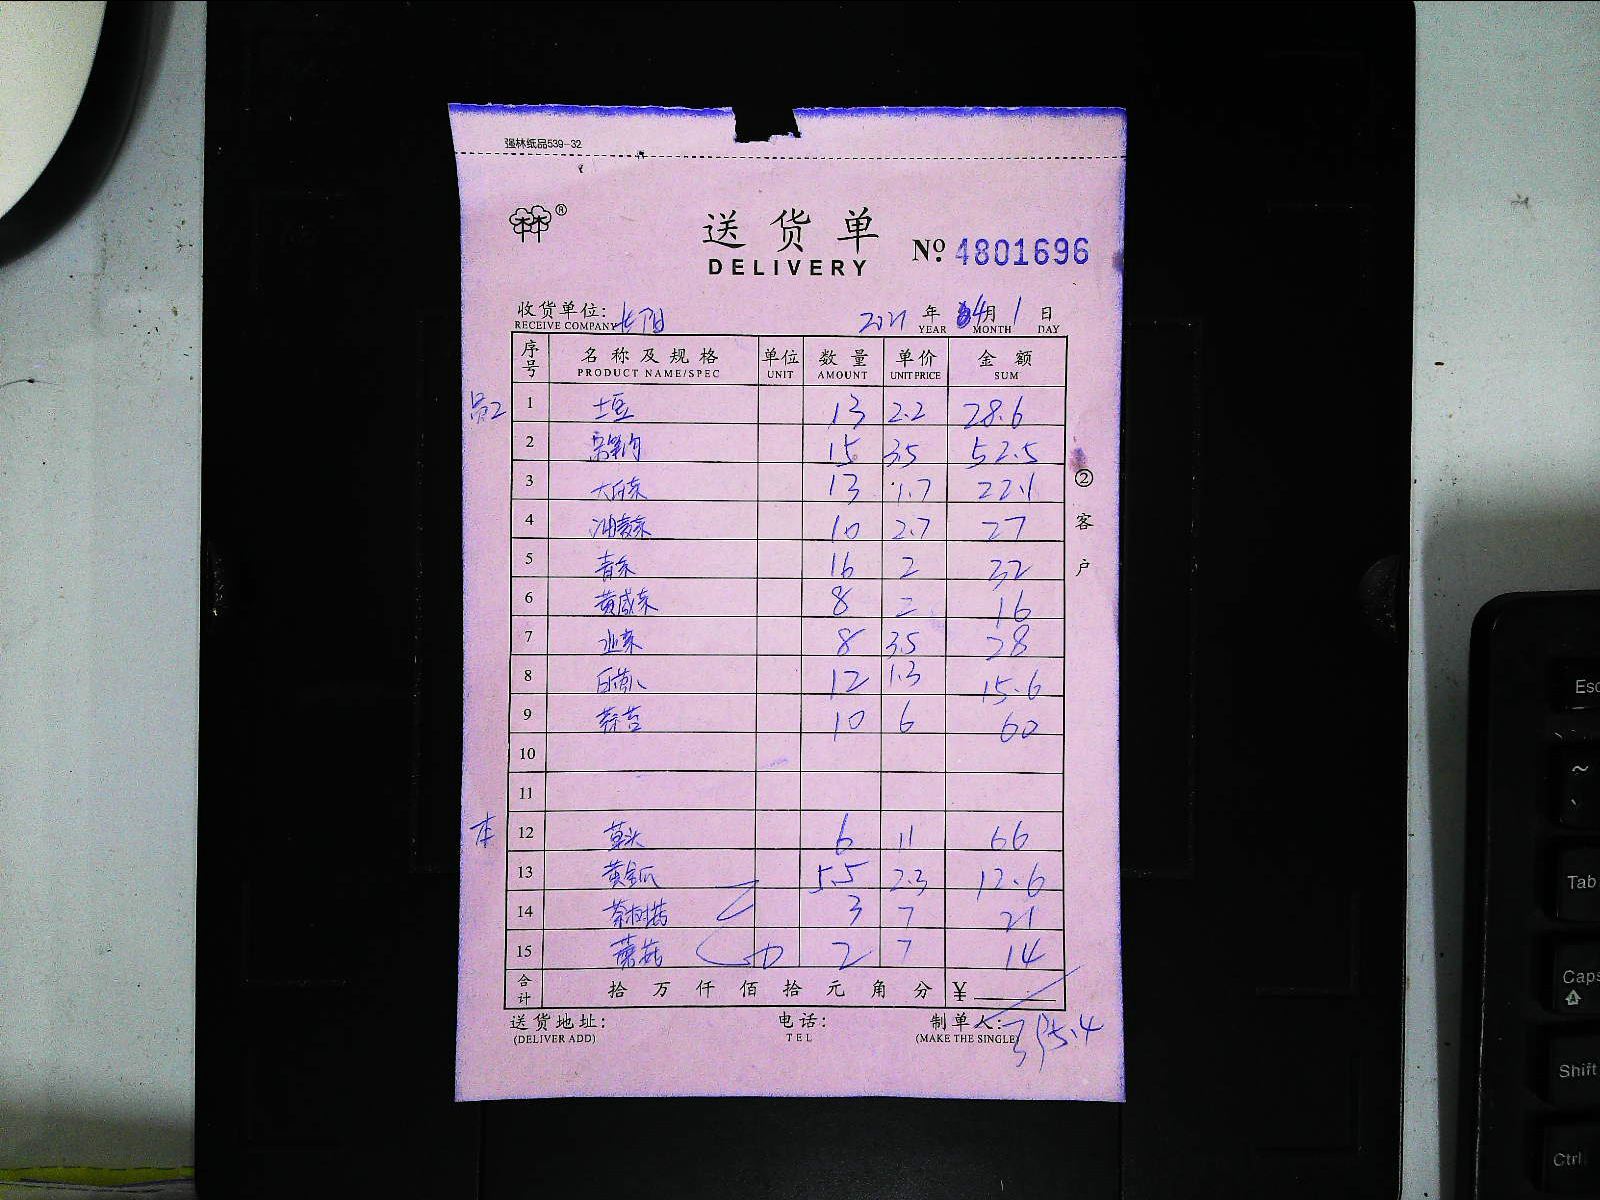 强林纸品539-32
送货单
DELIVERY
No. 4801696
收货单位: 长阳 2021 年 4 月 1 日
RECEIVE COMPANY YEAR MONTH DAY
序号 名称及规格 单位 数量 单价 金额
PRODUCT NAME/SPEC UNIT AMOUNT UNIT PRICE SUM
员工 1 土豆 13 2.2 28.6
2 15 3.5 52.5
3 大白菜 13 1.7 22.1
4 油麦菜 10 2.7 27
5 青菜 16 2 32
6 黄咸菜 8 2 16
7 8 3.5 28
8 白萝卜 12 1.3 15.6
9 蒜苔 10 6 60
10
11
本 12 草头 6 11 66
13 黄金瓜 5.5 2.3 12.6
14 茶树菇 3 7 21
15 蘑菇 2 7 14
合计 拾 万 仟 佰 拾 元 角 分 ¥
395.4
送货地址: 电话: 制单人:
(DELIVER ADD) TEL (MAKE THE SINGLE)
②客户
Esc
~
Tab
Caps
Shift
Ctrl